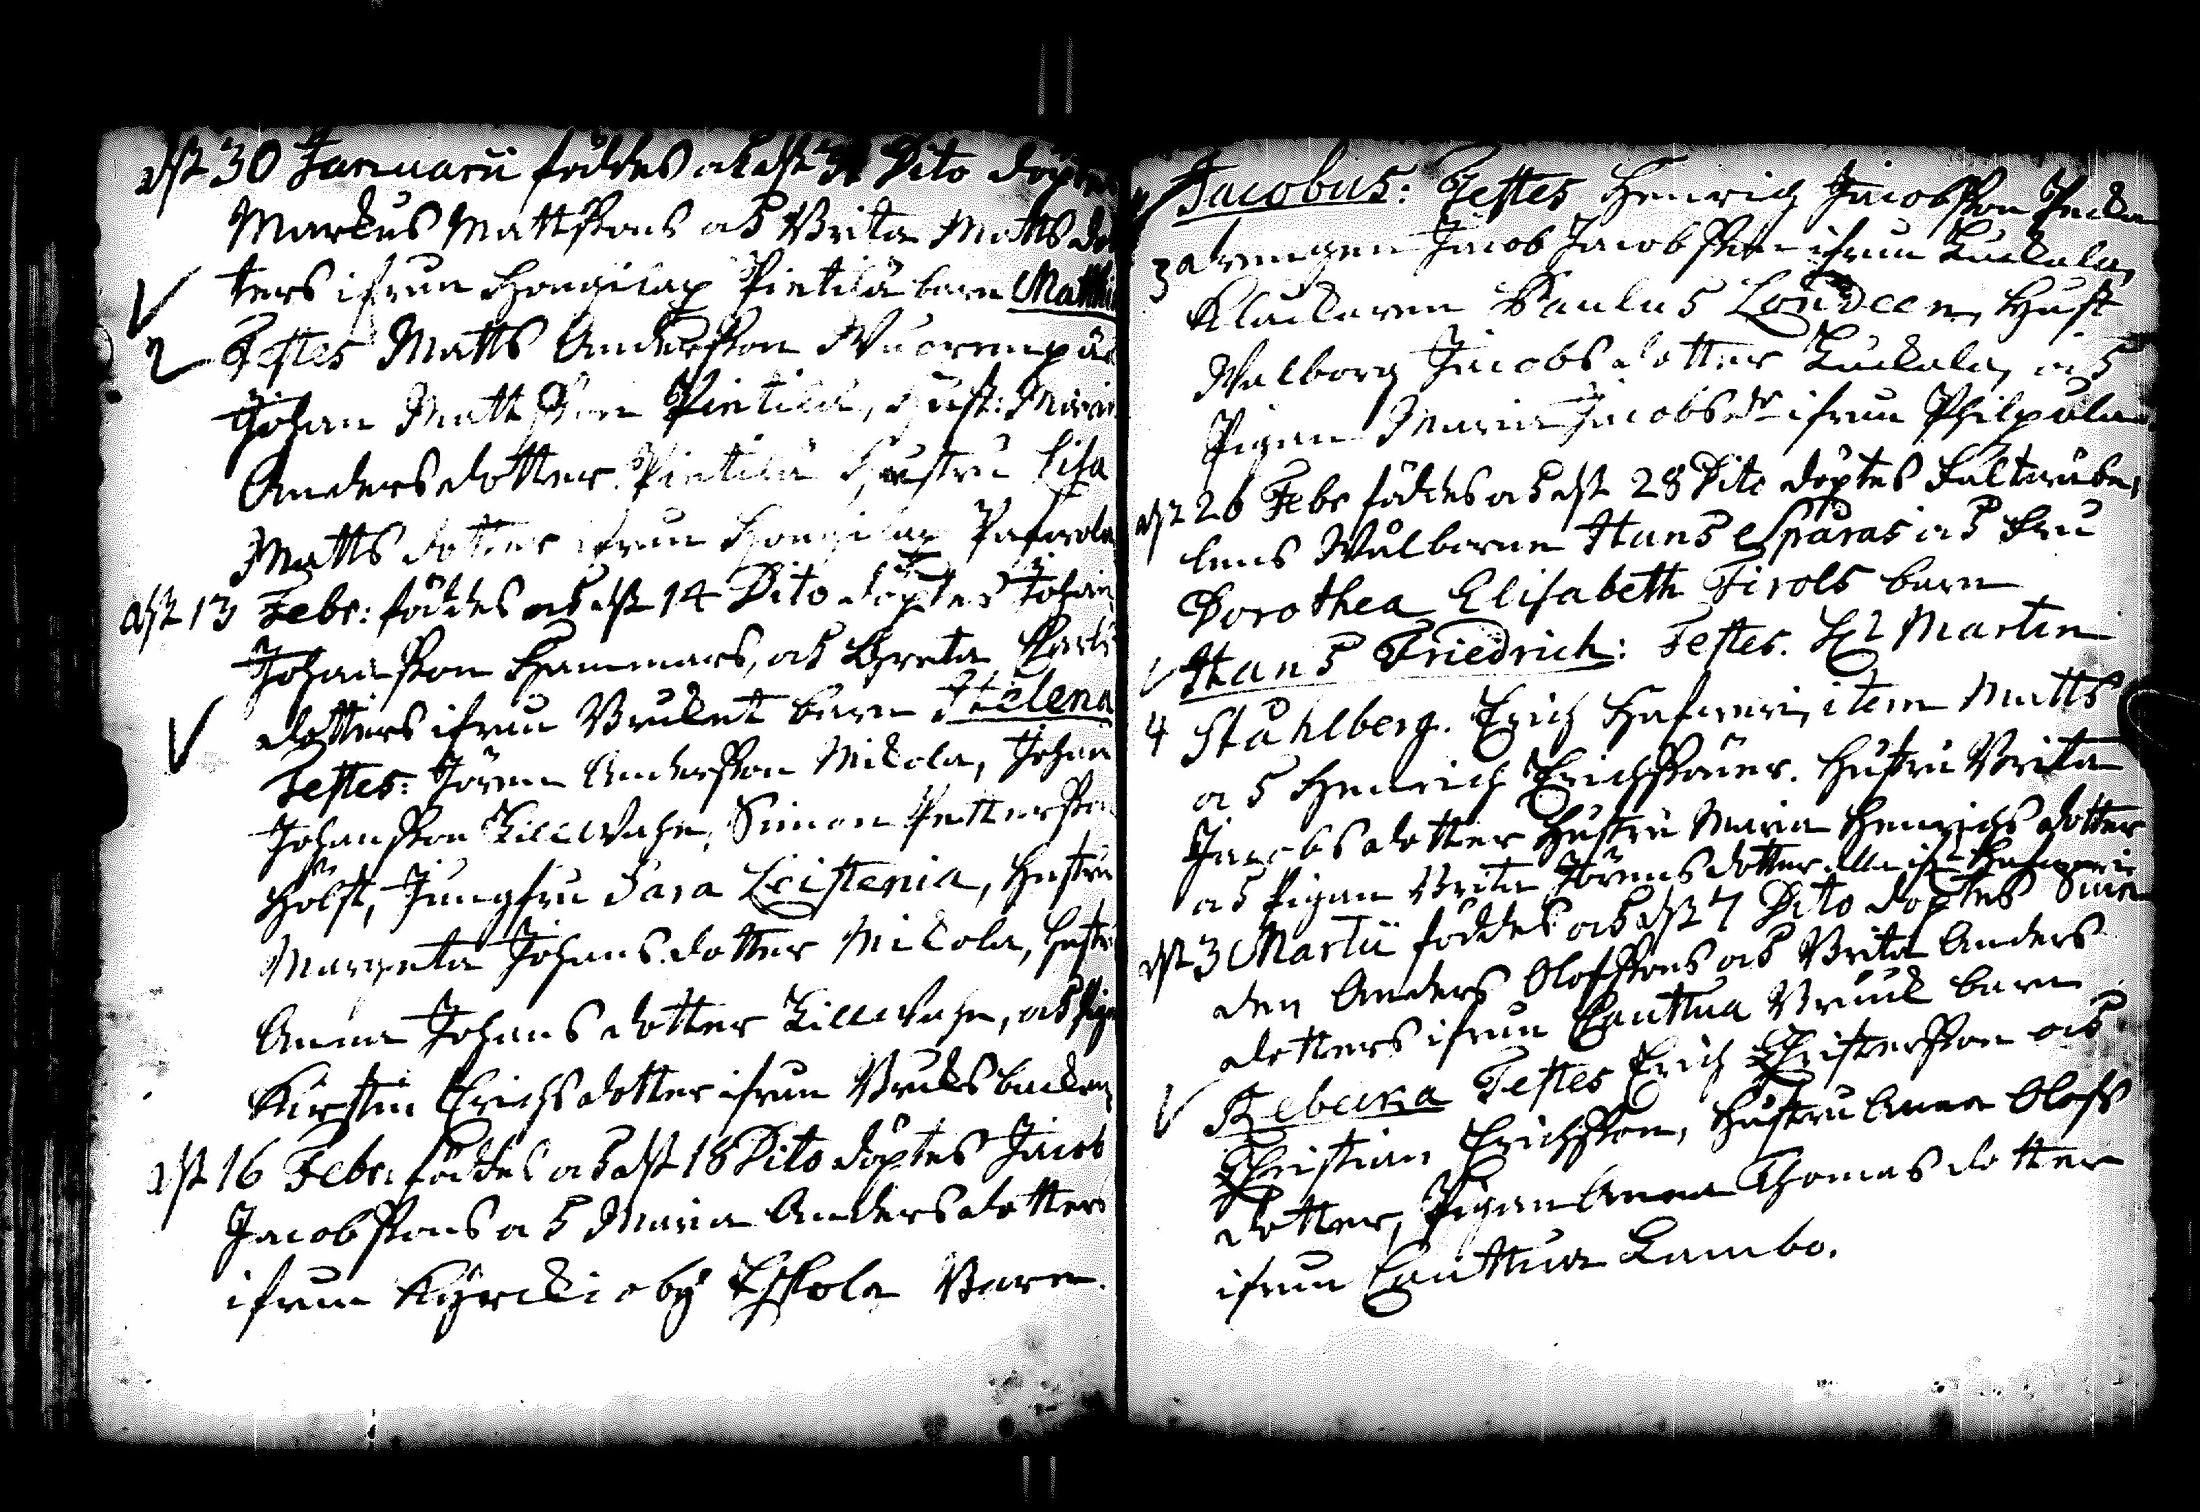 dst 30 Januarii föddes och dst 31 Dito döptes
Markus Mattssons och Brita Matts dot
ters ifrån Hongilax Pietilä barn Matthi
2 Testes Matts Andersson Wuorenpää
Johan Mattsson Pietilä, Hust: Maria
Anders dotter Pietilä Hustru Lisa
Matts dotter ifrån Hongilax
dst 13 Febr: föddes och dst 14 Dito döptes Johan
Johansson Hammars, och Greta
dotters ifrån Bruket barn Helena
Testes: Jören Andersson Mikola, Johan
Johansson Killwahe, Simon Pettersson
Holst, Jungfru Sara Leistenia, Hustru
Margeta Johans dotter Mikola, Hustru
Anna Johans dotter Killwahe, och Pigan
Kirstin Erichs dotter ifrån Bruksbacken
dst 16 Febr: föddes och dst 18 Dito döptes Jacob
Jacobssons och Maria Anders dotters
ifrån Kyrckioby Eskola Barn.
Jacobus: Testes Henrich Jacobsson
3 drengen Jacob Jacobsson ifrån Kuckola,
Klåckaren Paulus Londeen, Hust
Walborg Jacobs dotter Kuckola, och
Pigan Maria Jacobs dr ifrån Philpula
dst 26 Febr föddes och dst 28 Dito döptes
lens Wälborne Hans Sparas och Fru
Dorothea Elisabeth Tirols barn
Hans Friedrich: Testes. Hr Martin
4 Ståhlberg. Erich item Matts
och Henrich Erichssöner. Hustru Brita
Jacobs dotter Hustru Maria Henrichs dotter
och Pigan Brita Jörens dotter alla ifr
dst 3 Martii föddes och dst 7 Dito döptes
den Anders Olofssons och Brita Anders
dotters ifrån Cauttua Bruuk barn
Rebecka Testes Erich Christersson och
Christian Erichsson, Hustru Anna Olofs
dotter, Pigan Anna Thomas dotter
ifrån Cauttua Lambo.